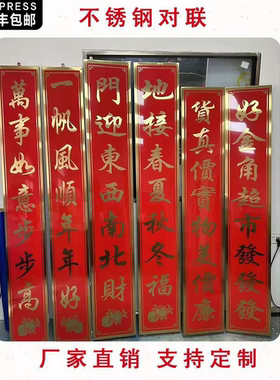 PRESS
丰包邮
不锈钢对联
萬事如意步步高
一帆風順年年好
門迎東西南北財
地接春夏秋冬福
貨真價實物美價廉
好金角超市發發發
厂家直销 支持定制